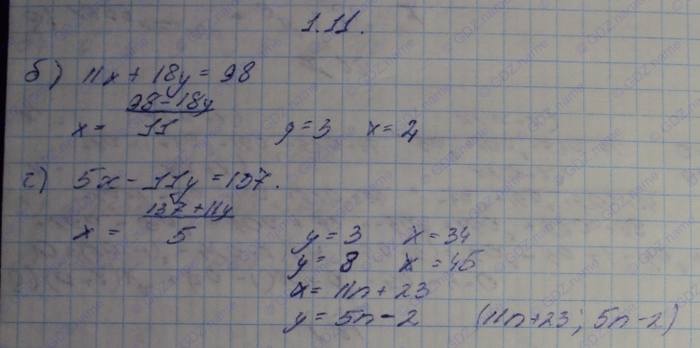 1.11.
б) 11x + 18y = 98
x = (98 - 18y)/11 y = 3 x = 4
г) 5x - 11y = 137.
x = (137 + 11y)/5
y = 3 x = 34
y = 8 x = 45
x = 11n + 23
y = 5n - 2 (11n + 23; 5n - 2)